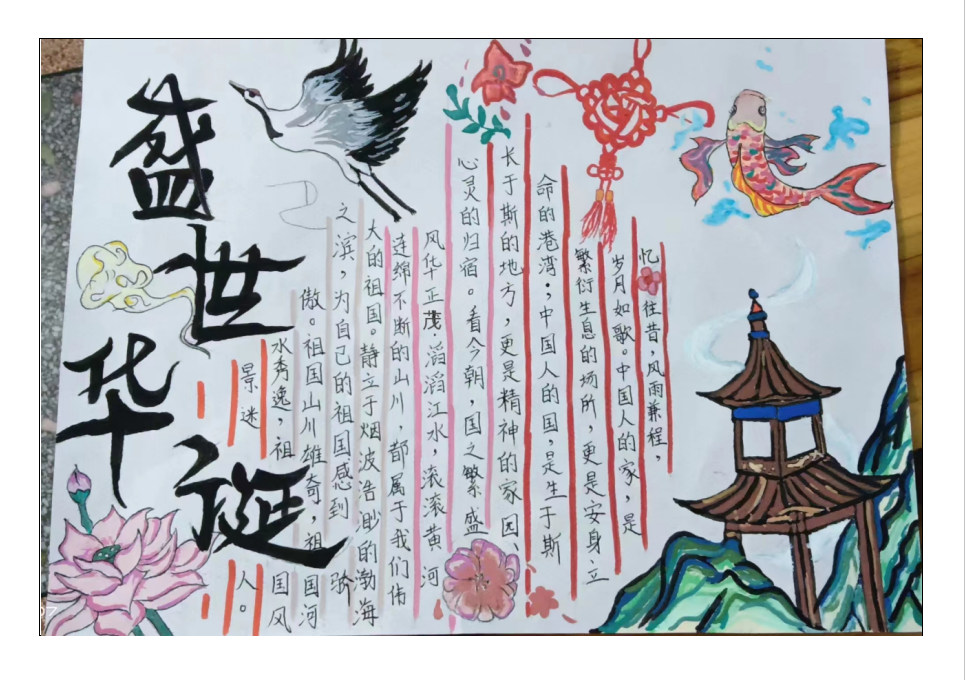 盛世华诞
忆往昔，风雨兼程，
岁月如歌。中国人的家，是
繁衍生息的场所，更是安身立
命的港湾；中国人的国，是生于斯
长于斯的地方，更是精神的家园、
心灵的归宿。看今朝，国之繁盛
风华正茂.滔滔江水，滚滚黄河
连绵不断的山川，都属于我们伟
大的祖国。静立于烟波浩渺的渤海
之滨，为自己的祖国感到骄
傲。祖国山川雄奇，祖国河
水秀逸，祖国风
景迷人。